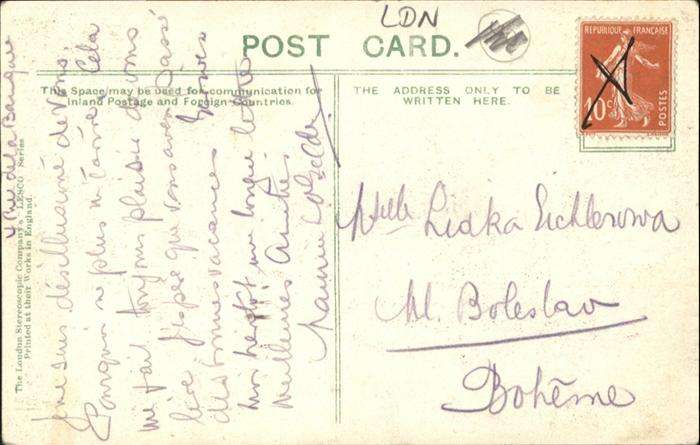 LDN
POST CARD.
This Space may be used for communication for
Inland Postage and Foreign Countries.
THE ADDRESS ONLY TO BE
WRITTEN HERE.
REPUBLIQUE FRANÇAISE
10 c
POSTES
Melle Lidka Eichlerowa
Ml. Boleslav
Bohême
4 Rue de la Banque
The London Stereoscopic Company's "LESCO" Series
Printed at their Works in England.
Je suis désillusionné de vous!
Pourquoi ne plus m'écrire? Cela
me fait toujours plaisir de vous
lire. J'espère que vous avez passé
de bonnes vacances
moi bientôt une longue lettre
Meilleures Amitiés